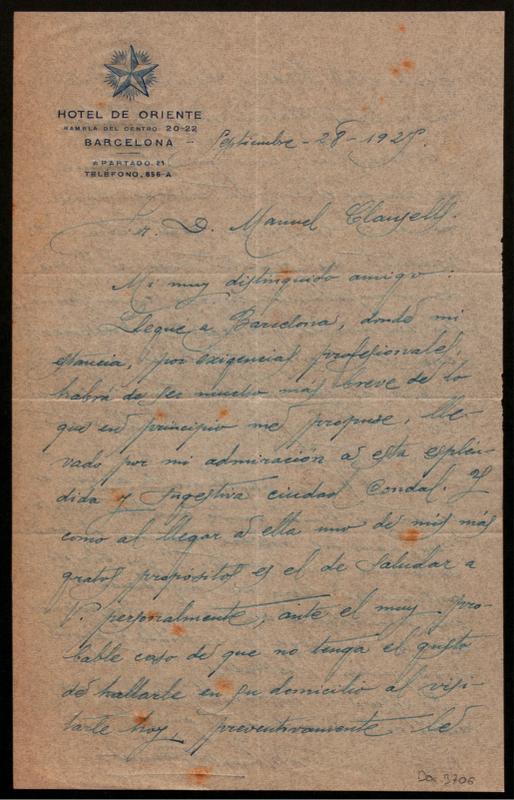 HOTEL DE ORIENTE
RAMBLA DEL CENTRO 20-22
BARCELONA
APARTADO. 21
TELÉFONO. 856-A
Septiembre - 28 - 1925.
Sr. D. Manuel Clausells.
Mi muy distinguido amigo:
Llegue a Barcelona, donde mi
estancia, por exigencias profesionales,
habrá de ser mucho más breve de lo
que en principio me propuse, lle-
vado por mi admiración a esta esplén-
dida y sugestiva ciudad Condal. Y
como al llegar a ella uno de mis más
gratos propósitos es el de saludar a
V. personalmente, ante el muy pro-
bable caso de que no tenga el gusto
de hallarle en su domicilio al visi-
tarle hoy, preventivamente le
Doc 3706